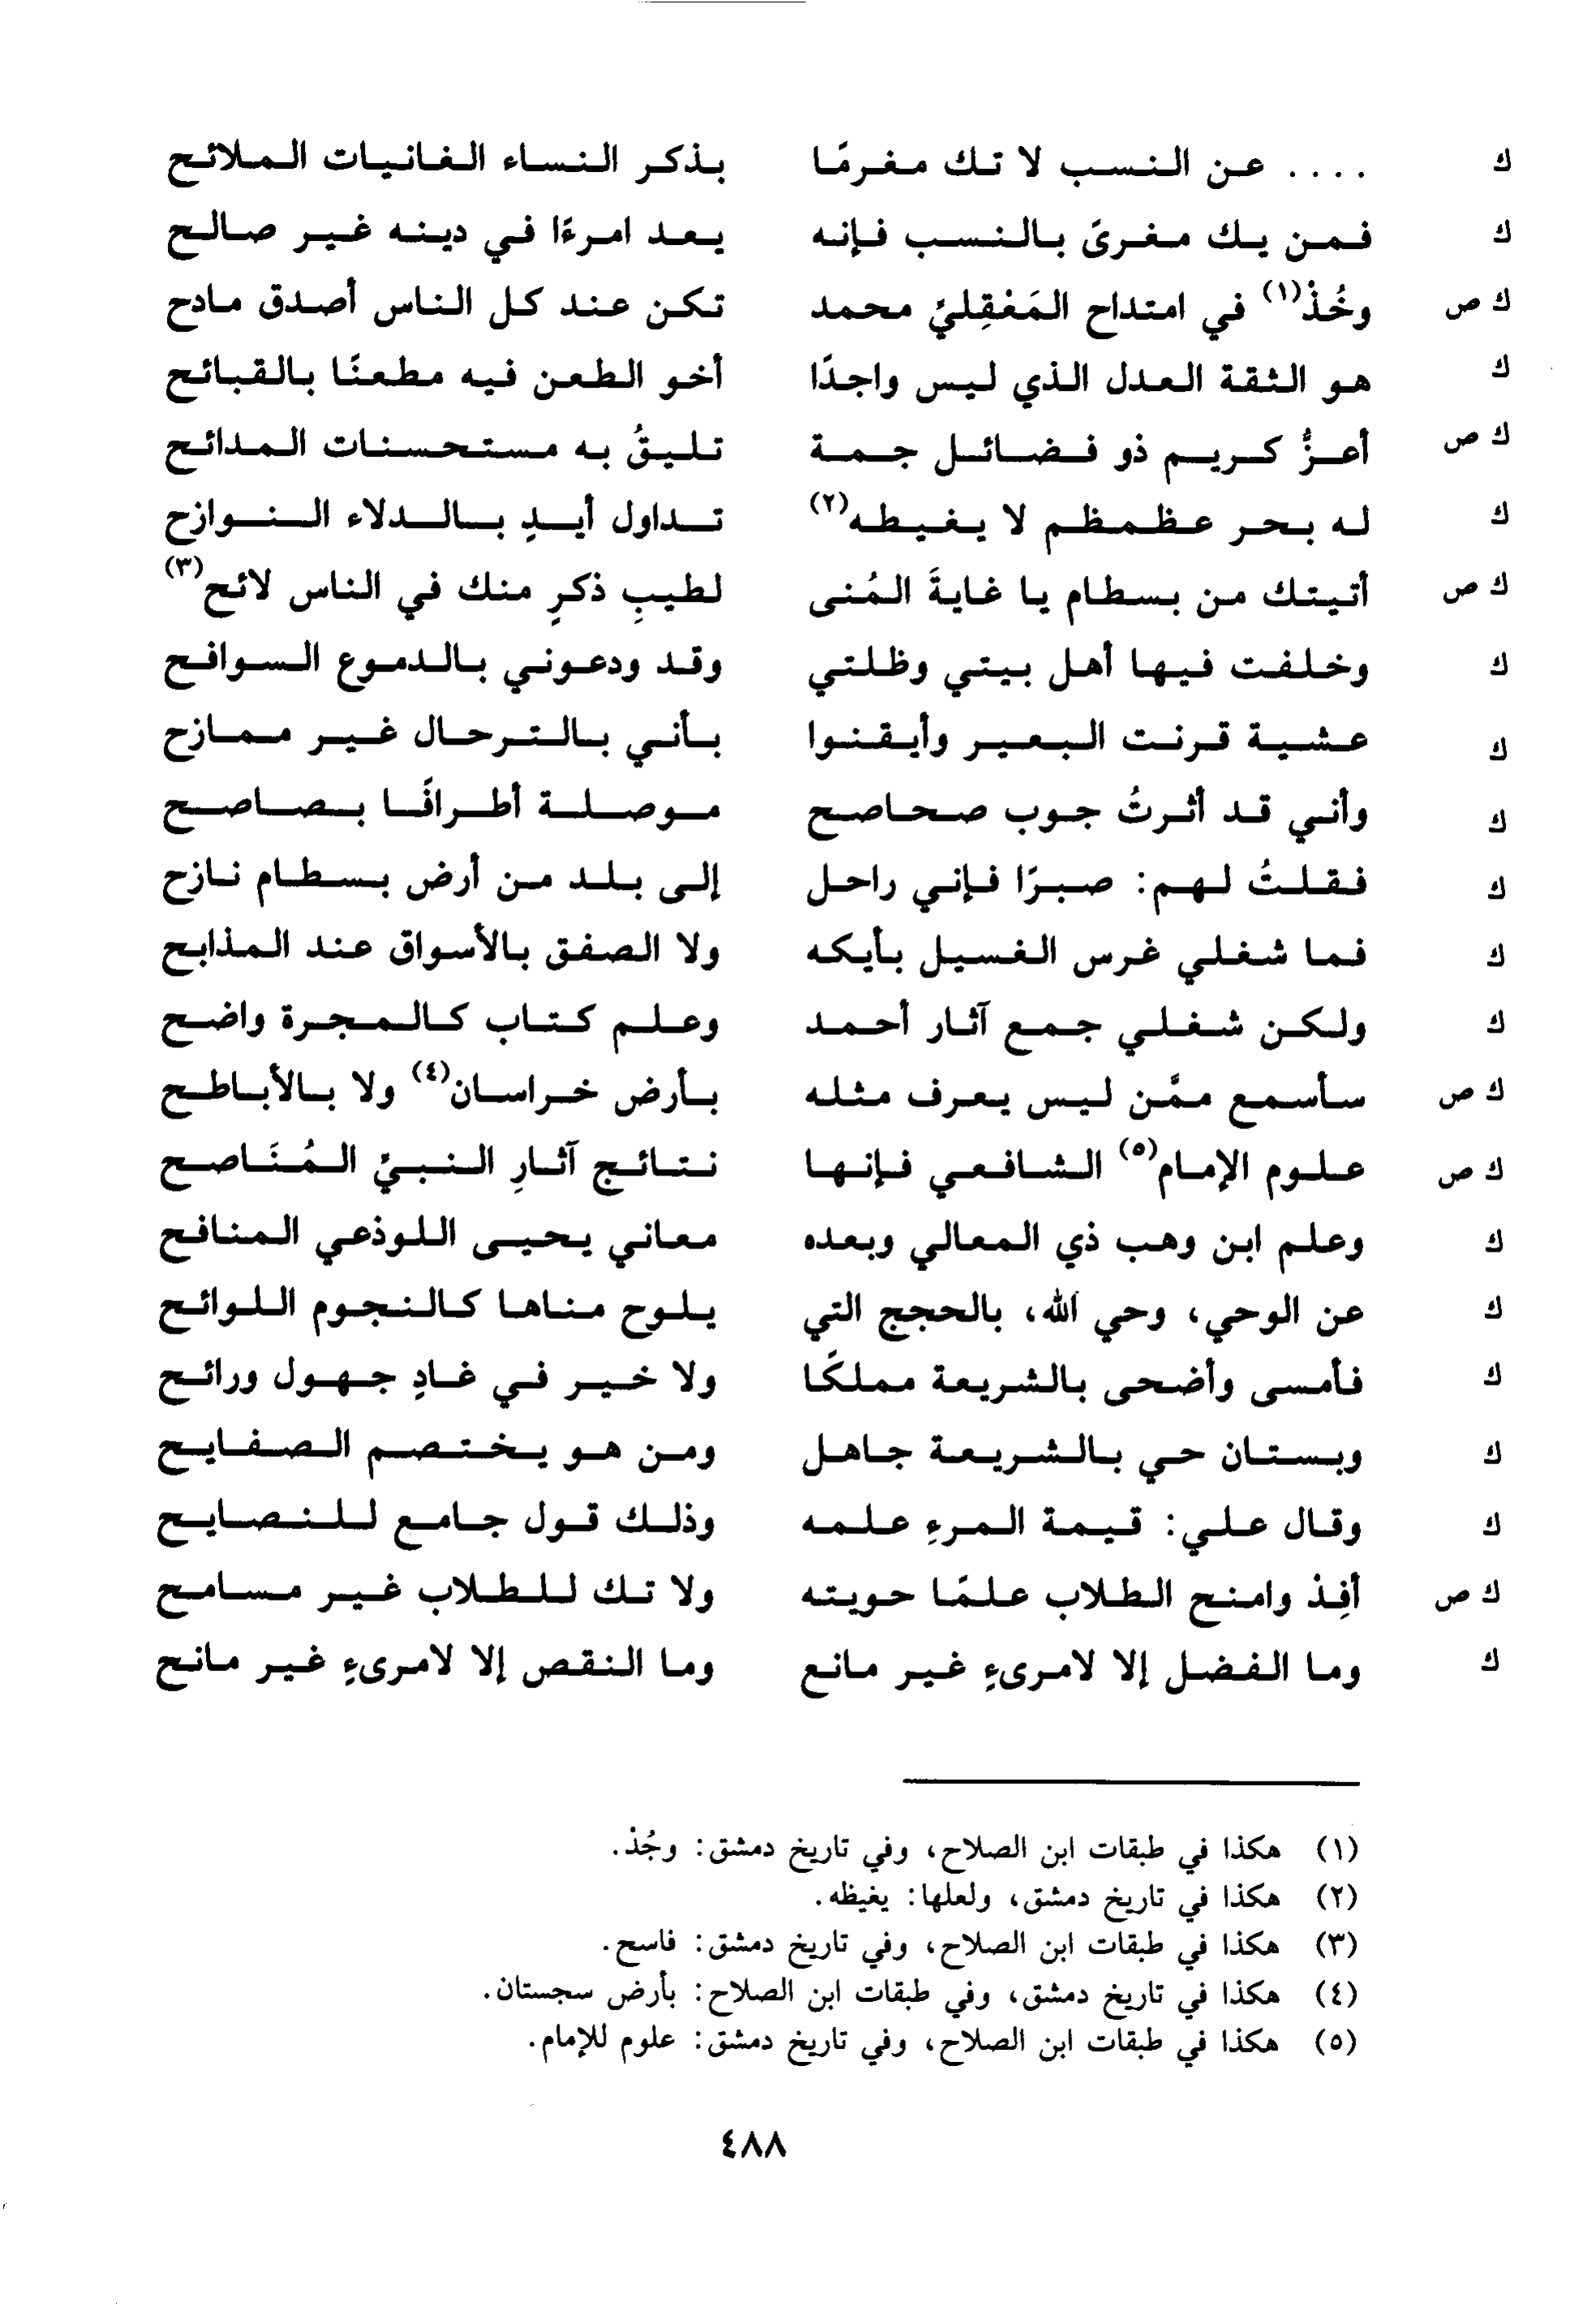 ك .... عن النسب لا تك مغرمًا بذكر النساء الغانيات الملائح
ك فمن يك مغرىً بالنسب فإنه يعد امرءًا في دينه غير صالح
ك ص وخُذْ(١) في امتداح المَعْقِليِّ محمد تكن عند كل الناس أصدق مادح
ك هو الثقة العدل الذي ليس واجدًا أخو الطعن فيه مطعنًا بالقبائح
ك ص أعزُّ كريم ذو فضائل جمة تليقُ به مستحسنات المدائح
ك له بحر عظمظم لا يغيطه(٢) تداول أيدٍ بالدلاء النوازح
ك ص أتيتك من بسطام يا غايةَ المُنى لطيبِ ذكرٍ منك في الناس لائح(٣)
ك وخلفت فيها أهل بيتي وظلتي وقد ودعوني بالدموع السوافح
ك عشية قرنت البعير وأيقنوا بأني بالترحال غير ممازح
ك وأني قد أثرتُ جوب صحاصح موصلة أطرافًا بصاصح
ك فقلتُ لهم: صبرًا فإني راحل إلى بلد من أرض بسطام نازح
ك فما شغلي غرس الغسيل بأيكه ولا الصفق بالأسواق عند المذابح
ك ولكن شغلي جمع آثار أحمد وعلم كتاب كالمجرة واضح
ك ص سأسمع ممَّن ليس يعرف مثله بأرض خراسان(٤) ولا بالأباطح
ك ص علوم الإمام(٥) الشافعي فإنها نتائج آثارِ النبيِّ المُنَاصح
ك وعلم ابن وهب ذي المعالي وبعده معاني يحيى اللوذعي المنافح
ك عن الوحي، وحي الله، بالحجج التي يلوح مناها كالنجوم اللوائح
ك فأمسى وأضحى بالشريعة مملكًا ولا خير في غادٍ جهول ورائح
ك وبستان حي بالشريعة جاهل ومن هو يختصم الصفايح
ك وقال علي: قيمة المرءِ علمه وذلك قول جامع للنصايح
ك ص أفِذْ وامنح الطلاب علمًا حويته ولا تك للطلاب غير مسامح
ك وما الفضل إلا لامرىءٍ غير مانع وما النقص إلا لامرىءٍ غير مانح
(١) هكذا في طبقات ابن الصلاح، وفي تاريخ دمشق: وجُذ.
(٢) هكذا في تاريخ دمشق، ولعلها: يغيظه.
(٣) هكذا في طبقات ابن الصلاح، وفي تاريخ دمشق: فاسح.
(٤) هكذا في تاريخ دمشق، وفي طبقات ابن الصلاح: بأرض سجستان.
(٥) هكذا في طبقات ابن الصلاح، وفي تاريخ دمشق: علوم للإمام.
٤٨٨